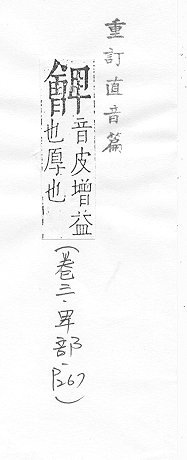 重訂直音篇
朇音皮增益
也厚也
(卷三·卑部·P267)